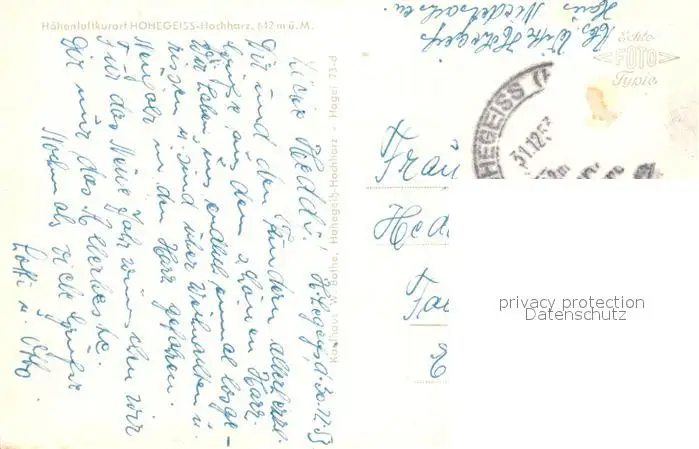 Höhenluftkurort HOHEGEISS-Hochharz, 642 m ü. M.
Hohegeiß, d. 30.12.53
Liebe Heddi!
Dir und den Kindern allerherzl.
Grüße aus dem schönen Harz.
Wir haben uns endlich einmal losge-
rissen u. sind über Weihnachten u.
Neujahr in den Harz gefahren.
Für das Neue Jahr wünschen wir
Dir nur das Allerbeste.
Nochmals viele Grüße
Lotti u. Otto.
Kaufhaus W. Bothe, Hohegeiß-Hochharz - Hagel 73-d
Abs. Hohegeiß
Haus Niedersachsen
Echte
FOTO
Typie
HEGEISS (
31.12.53
Frau
Hed
privacy protection
Datenschutz